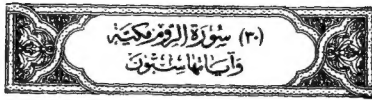 (٣٠) سُورَةُ الرُّومِ مَكِّيَّة
وَآيَاتُهَا سِتُّونَ